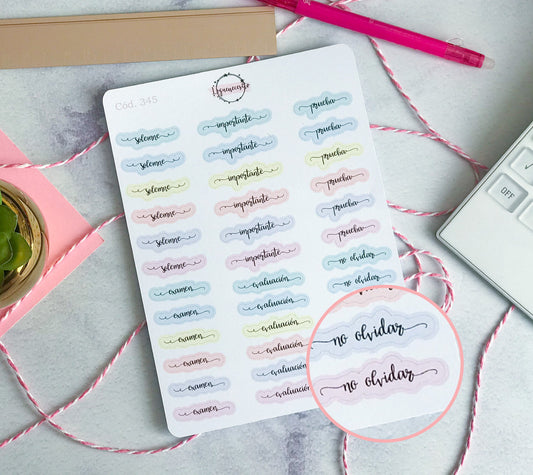 Cód. 345
solemne importante prueba
solemne importante prueba
solemne importante prueba
solemne importante prueba
solemne importante prueba
solemne importante prueba
examen evaluación no olvidar
examen evaluación no olvidar
examen evaluación
examen evaluación
examen evaluación
examen evaluación
no olvidar
no olvidar
OFF